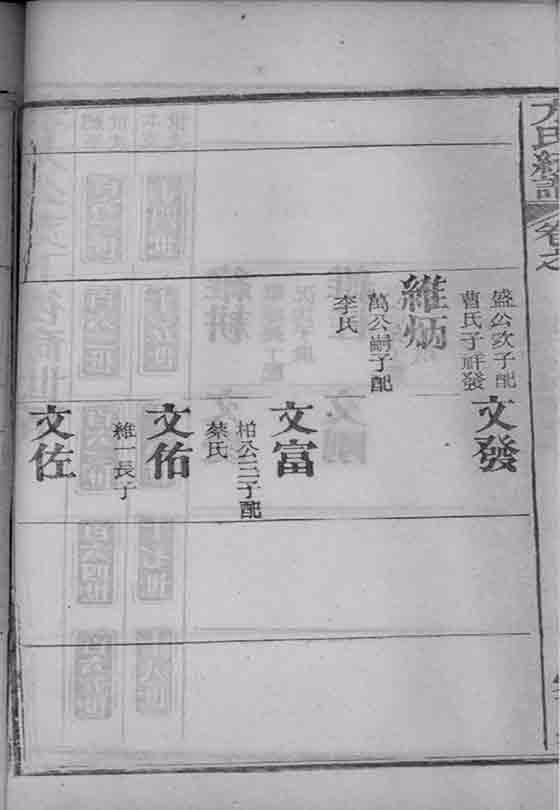 方氏統譜
卷之
盛公次子配
曹氏子祥發
文發
維炳
萬公嗣子配
李氏
文富
柏公三子配
蔡氏
文佑
維一長子
文佐